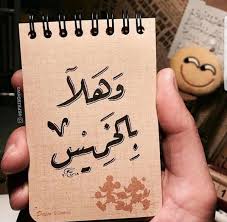 وَهَلآ
بِالخَمِيسْ